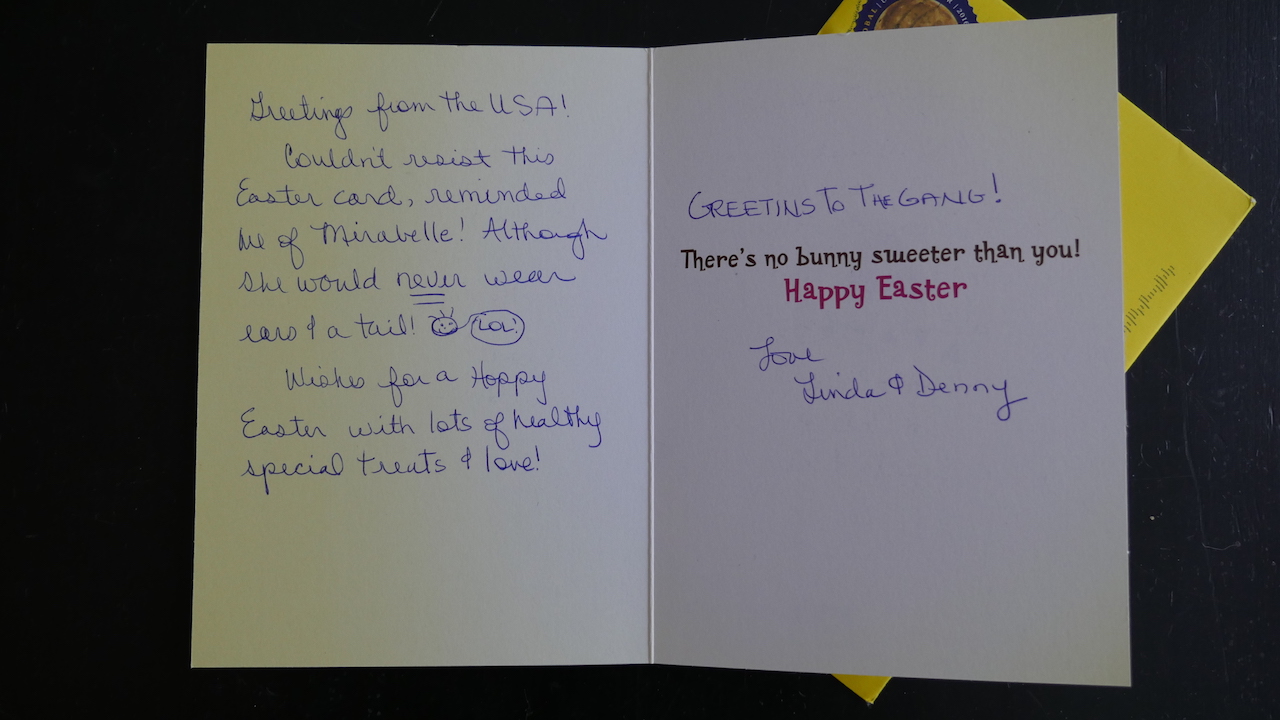 Greetings from the USA!
Couldn't resist this
Easter card, reminded
me of Mirabelle! Although
she would never wear
ears & a tail! LOL!
Wishes for a Hoppy
Easter with lots of healthy
special treats & love!
GREETINS TO THE GANG!
There's no bunny sweeter than you!
Happy Easter
Love
Linda & Denny